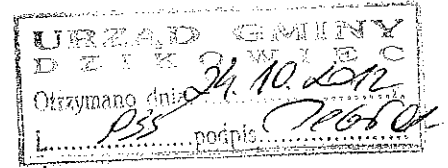 URZĄD GMINY
DZIKOWIEC
Otrzymano dnia 24.10.2012
L. 935 podpis